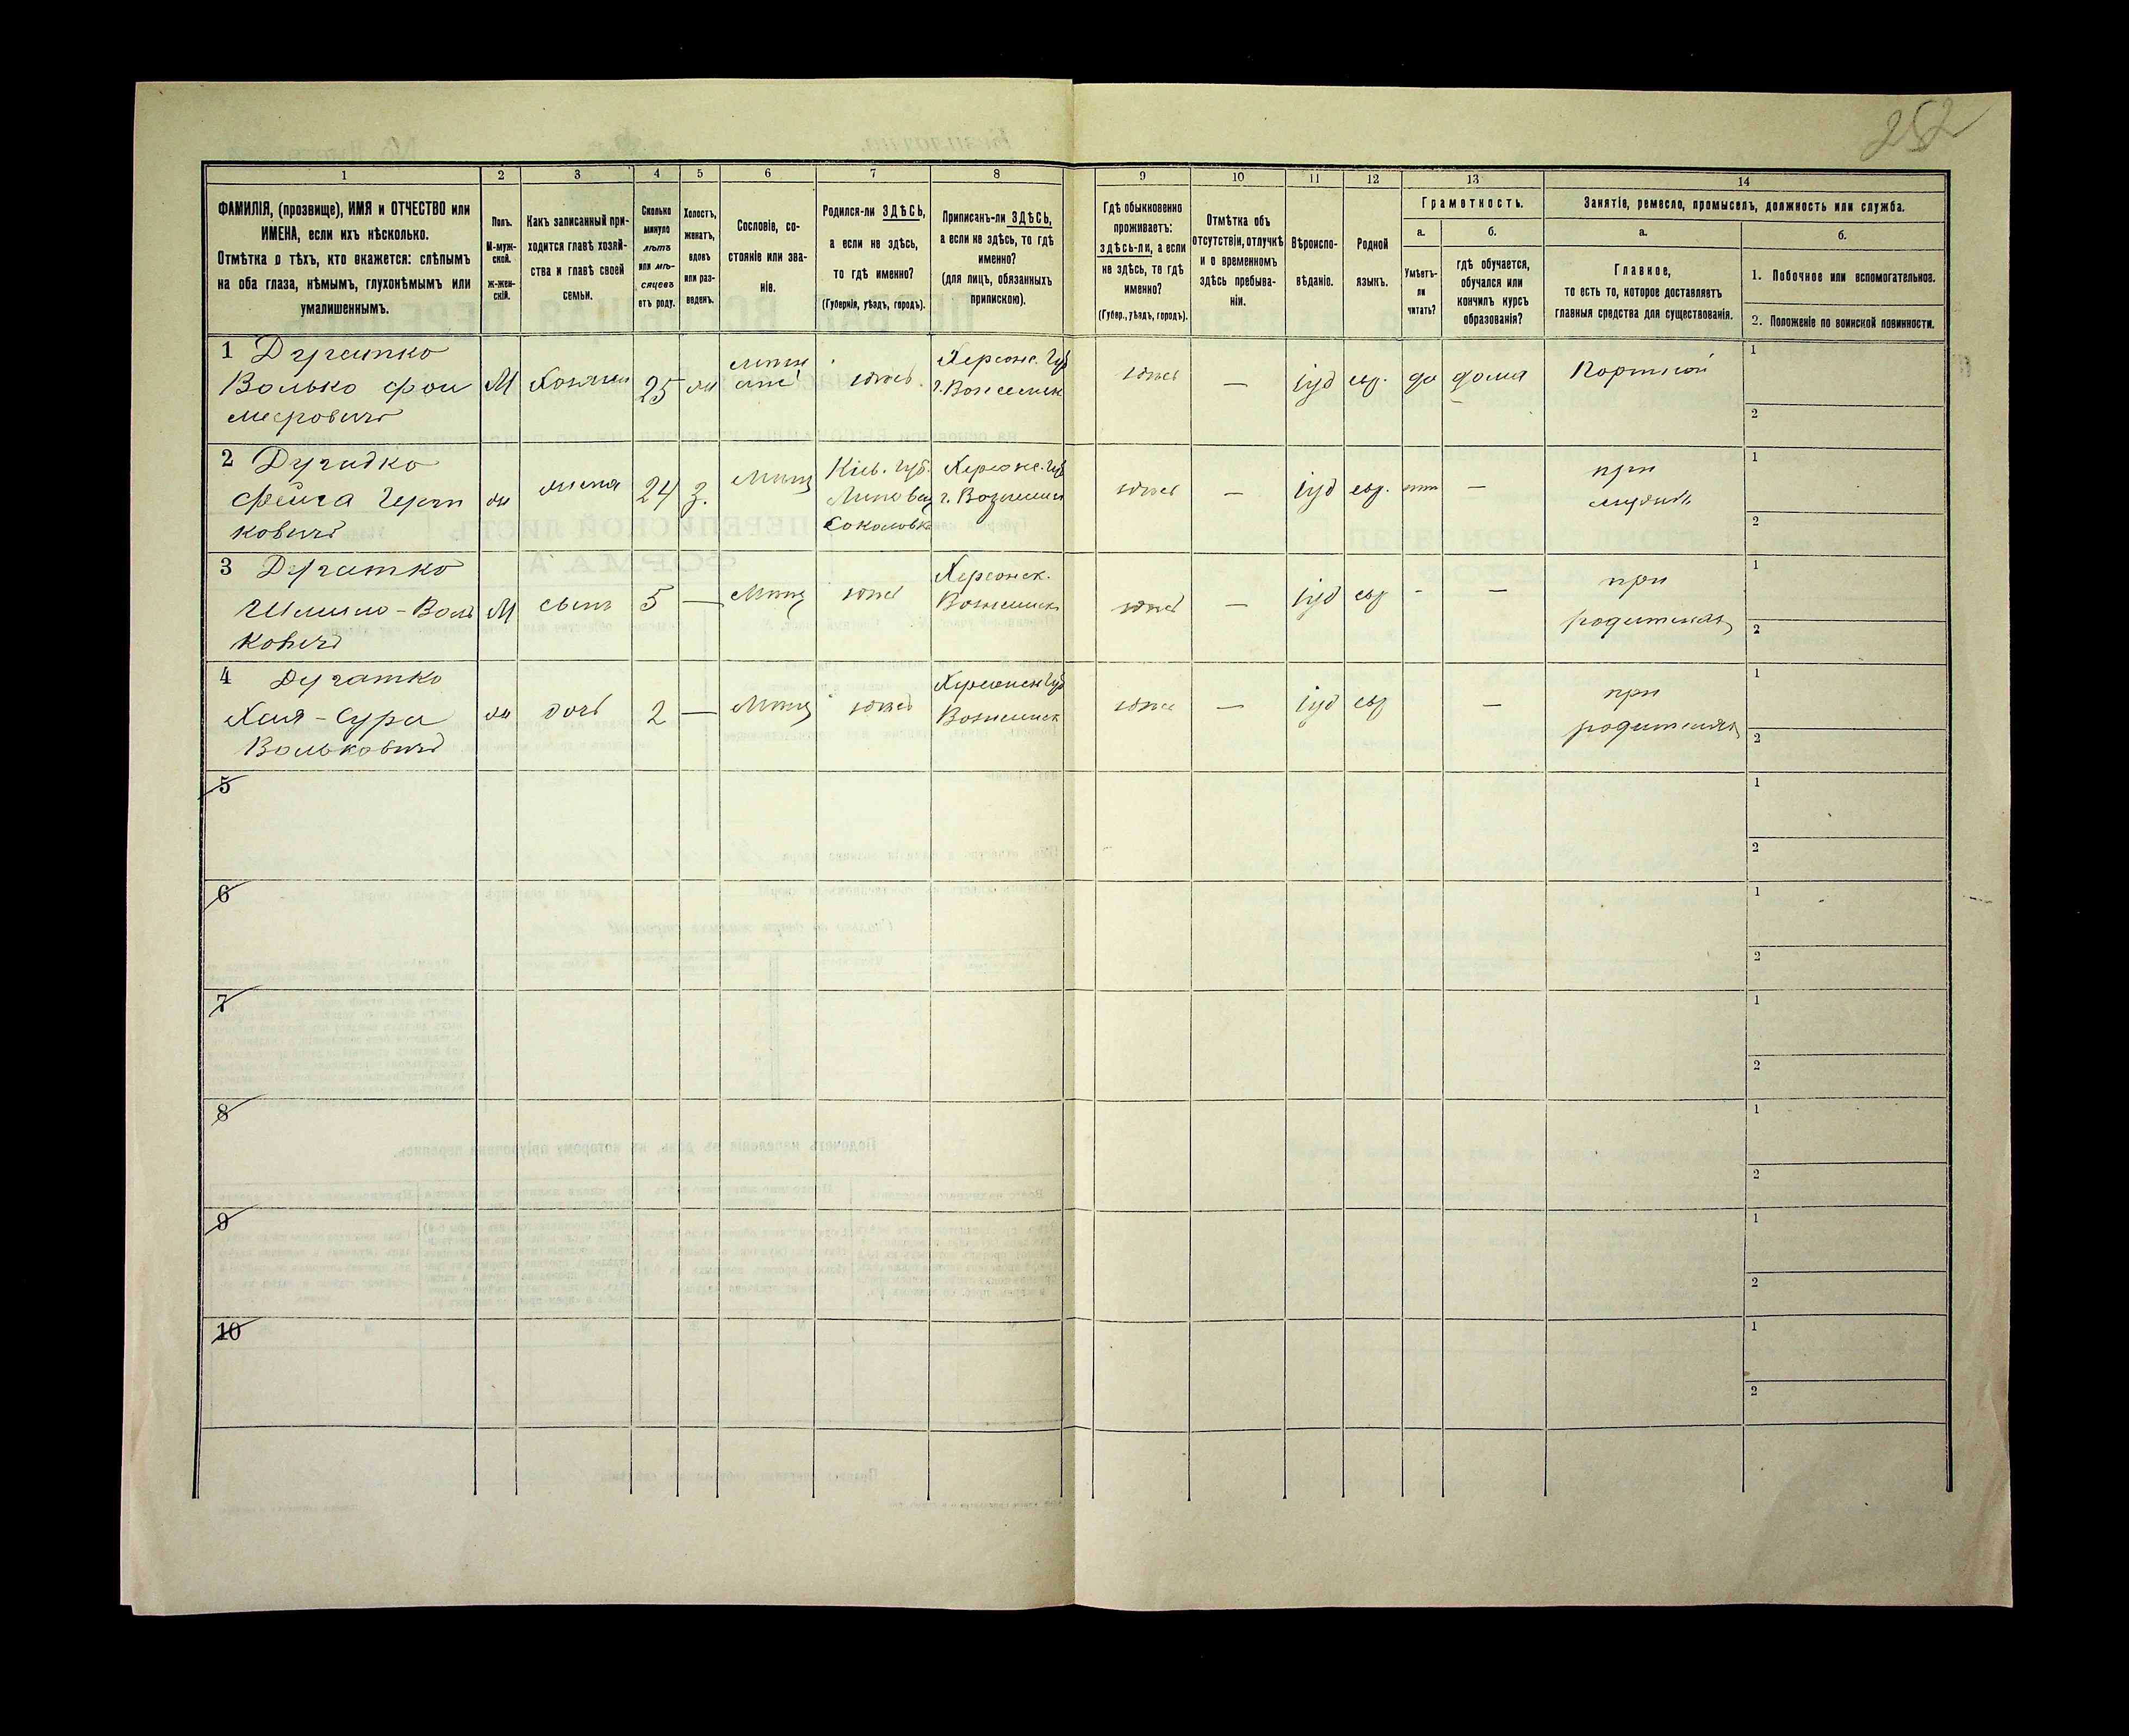 252
1 2 3 4 5 6 7 8 9 10 11 12 13 14
ФАМИЛІЯ, (прозвище), ИМЯ и ОТЧЕСТВО или
ИМЕНА, если ихъ нѣсколько.
Отмѣтка о тѣхъ, кто окажется: слѣпымъ
на оба глаза, нѣмымъ, глухонѣмымъ или
умалишеннымъ.
Полъ.
М-муж-
ской.
ж-жен-
скій.
Какъ записанный при-
ходится главѣ хозяй-
ства и главѣ своей
семьи.
Сколько
минуло
лѣтъ
или мѣ-
сяцевъ
отъ роду.
Холостъ,
женатъ,
вдовъ
или раз-
веденъ.
Сословіе, со-
стояніе или зва-
ніе.
Родился-ли ЗДѢСЬ,
а если не здѣсь,
то гдѣ именно?
(Губернія, уѣздъ, городъ).
Приписанъ-ли ЗДѢСЬ,
а если не здѣсь, то гдѣ
именно?
(для лицъ, обязанныхъ
припискою).
Гдѣ обыкновенно
проживаетъ:
здѣсь-ли, а если
не здѣсь, то гдѣ
именно?
(Губер., уѣздъ, городъ).
Отмѣтка объ
отсутствіи, отлучкѣ
и о временномъ
здѣсь пребыва-
ніи.
Вѣроиспо-
вѣданіе.
Родной
языкъ.
Грамотность.
а.
Умѣетъ-
ли
читать?
б.
гдѣ обучается,
обучался или
кончилъ курсъ
образованія?
Занятіе, ремесло, промыселъ, должность или служба.
а.
Главное,
то есть то, которое доставляетъ
главныя средства для существованія.
б.
1. Побочное или вспомогательное.
2. Положеніе по воинской повинности.
1 Дугатко
Волько
меровичъ
М
25
здѣсь
Херсонс. Губ
здѣсь
—
іуд
евр.
да
дома
Портной
1
2
2 Дугадко
Фейга
ковичъ
ж
жена
24
З.
Мѣщ
Кіев. Губ.
Соколовка
Херсонс. Губ
здѣсь
—
іуд
евр.
нѣт
—
при
мужѣ
1
2
3 Дугатко
Шлиомо-Воль
ковичъ
М
сынъ
5
—
Мѣщ
здѣсь
Херсонск.
здѣсь
—
іуд
евр
-
—
при
родителях
1
2
4 Дугатко
Хая-Сура
Вольковичъ
ж
дочь
2
—
Мѣщ
здѣсь
здѣсь
—
іуд
евр
—
при
родителях
1
2
5
1
2
6
1
2
7
1
2
8
1
2
9
1
2
10
1
2